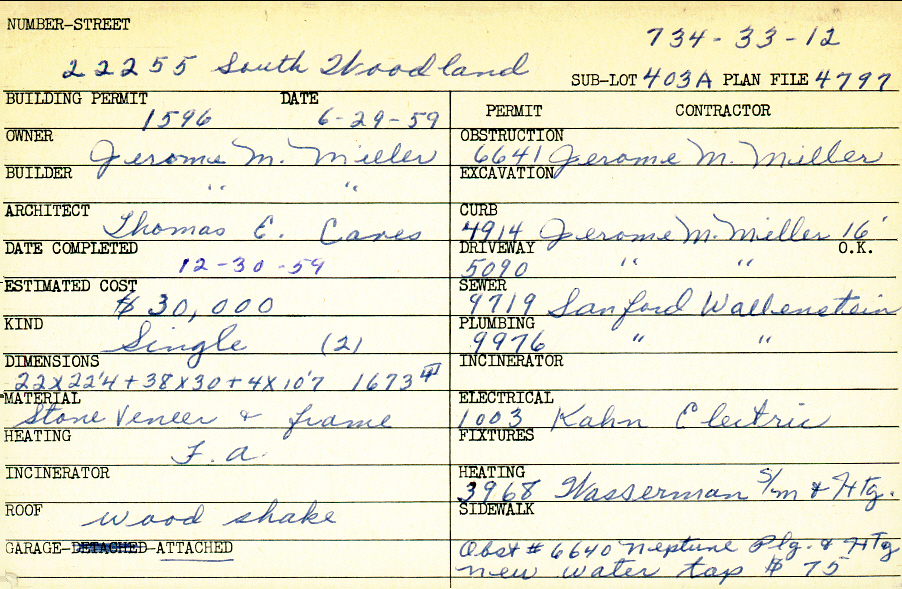 NUMBER-STREET
734-33-12
22255 South Woodland
SUB-LOT 403A PLAN FILE 4797
BUILDING PERMIT DATE
1596 6-29-59
OWNER
Jerome M. Miller
BUILDER
" "
ARCHITECT
Thomas E. Caves
DATE COMPLETED
12-30-59
ESTIMATED COST
$30,000
KIND
Single (2)
DIMENSIONS
22x22'4+38x30+4x10'7 1673
MATERIAL
Stone Veneer & frame
HEATING
F.a.
INCINERATOR
ROOF
wood shake
GARAGE-DETACHED-ATTACHED
PERMIT CONTRACTOR
OBSTRUCTION
6641 Jerome M. Miller
EXCAVATION
CURB
4914 Jerome M. Miller 16'
DRIVEWAY O.K.
5090 " "
SEWER
9719 Sanford Wallenstein
PLUMBING
9976 " "
INCINERATOR
ELECTRICAL
1003 Kahn Electric
FIXTURES
HEATING
3968 Wasserman S/m & Htg.
SIDEWALK
Obst # 6640 Neptune Plg. & HTg
new water tap $75